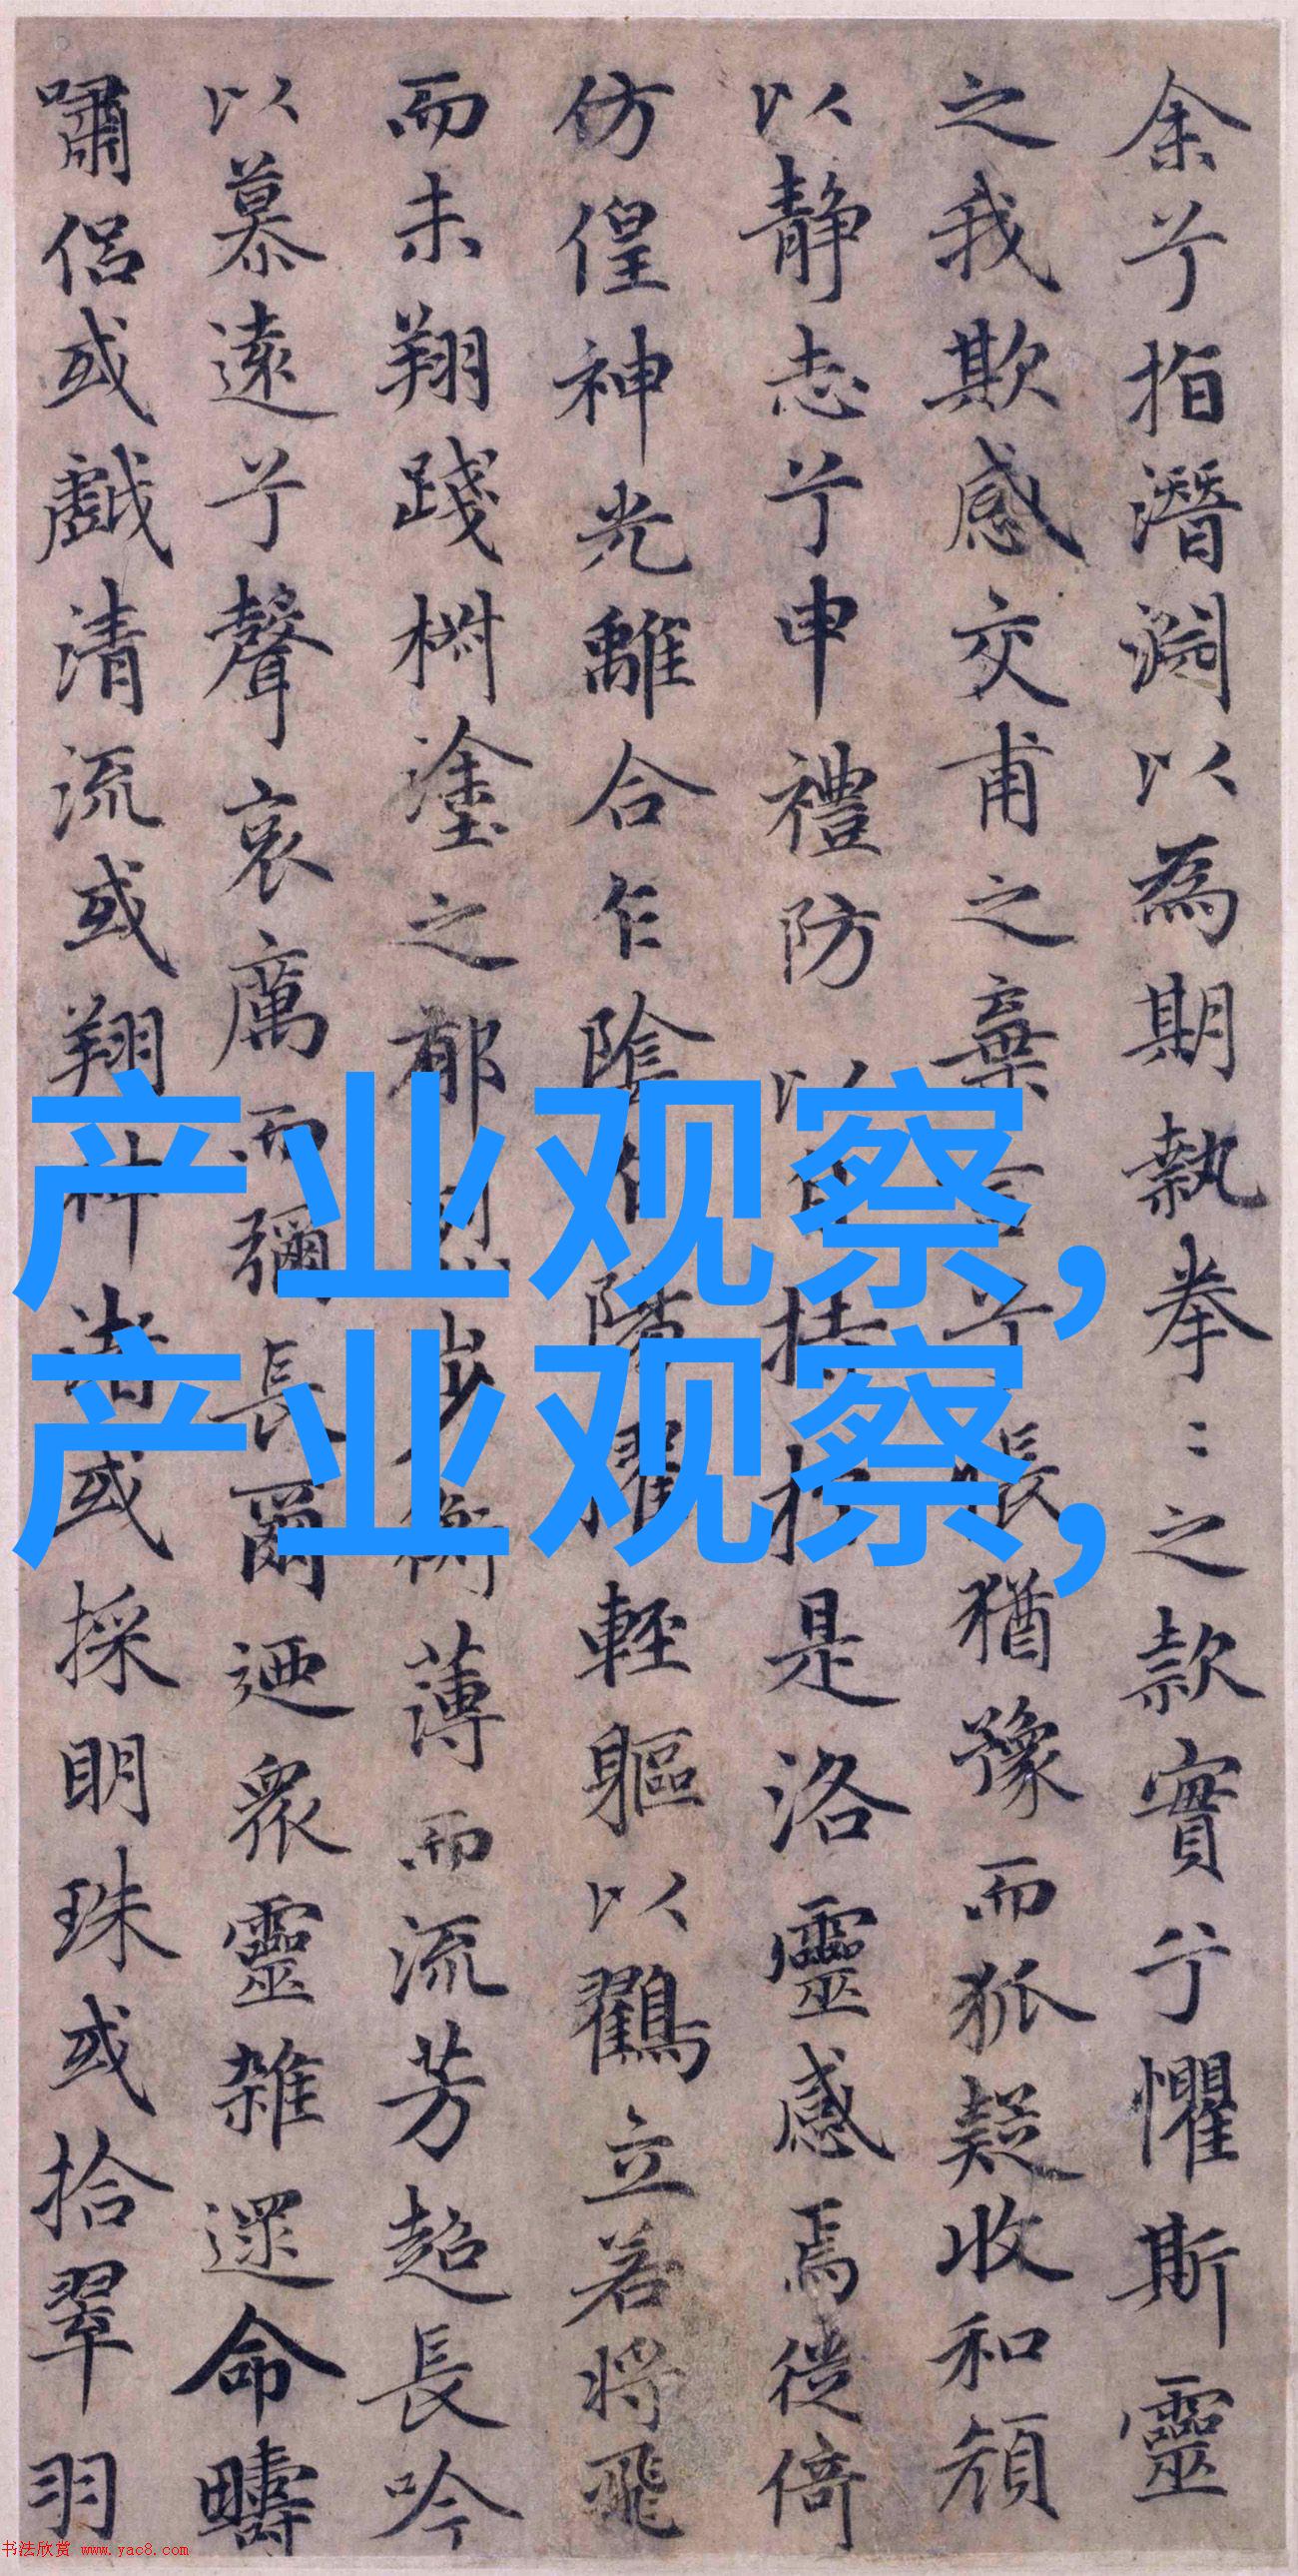 余兮指潛淵以為期執拳〻之款實兮懼斯靈
之我欺感交甫之棄言兮悵猶豫而狐疑收和顏
以靜志兮申禮防以自持於是洛靈感焉徙倚
仿偟神光離合乍陰乍陽擢輕軀以鶴立若將飛
而未翔踐椒塗之郁烈步衡薄而流芳超長吟
以慕遠兮聲哀厲而彌長爾迺衆靈雜遝命疇
嘯侶或戲清流或翔神渚或採明珠或拾翠羽
产业观察,
产业观察,
书法欣赏 www.yac8.com